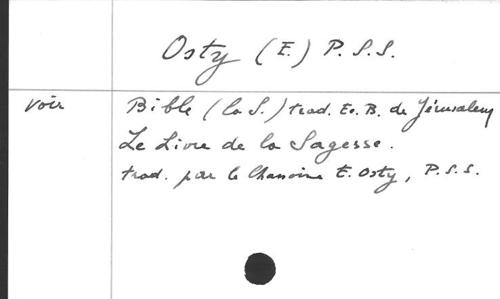 Osty (E.) P.S.S.
voir Bible (la S.) trad. Ec. B. de Jérusalem
Le Livre de la Sagesse.
trad. par le Chanoine E. Osty, P.S.S.